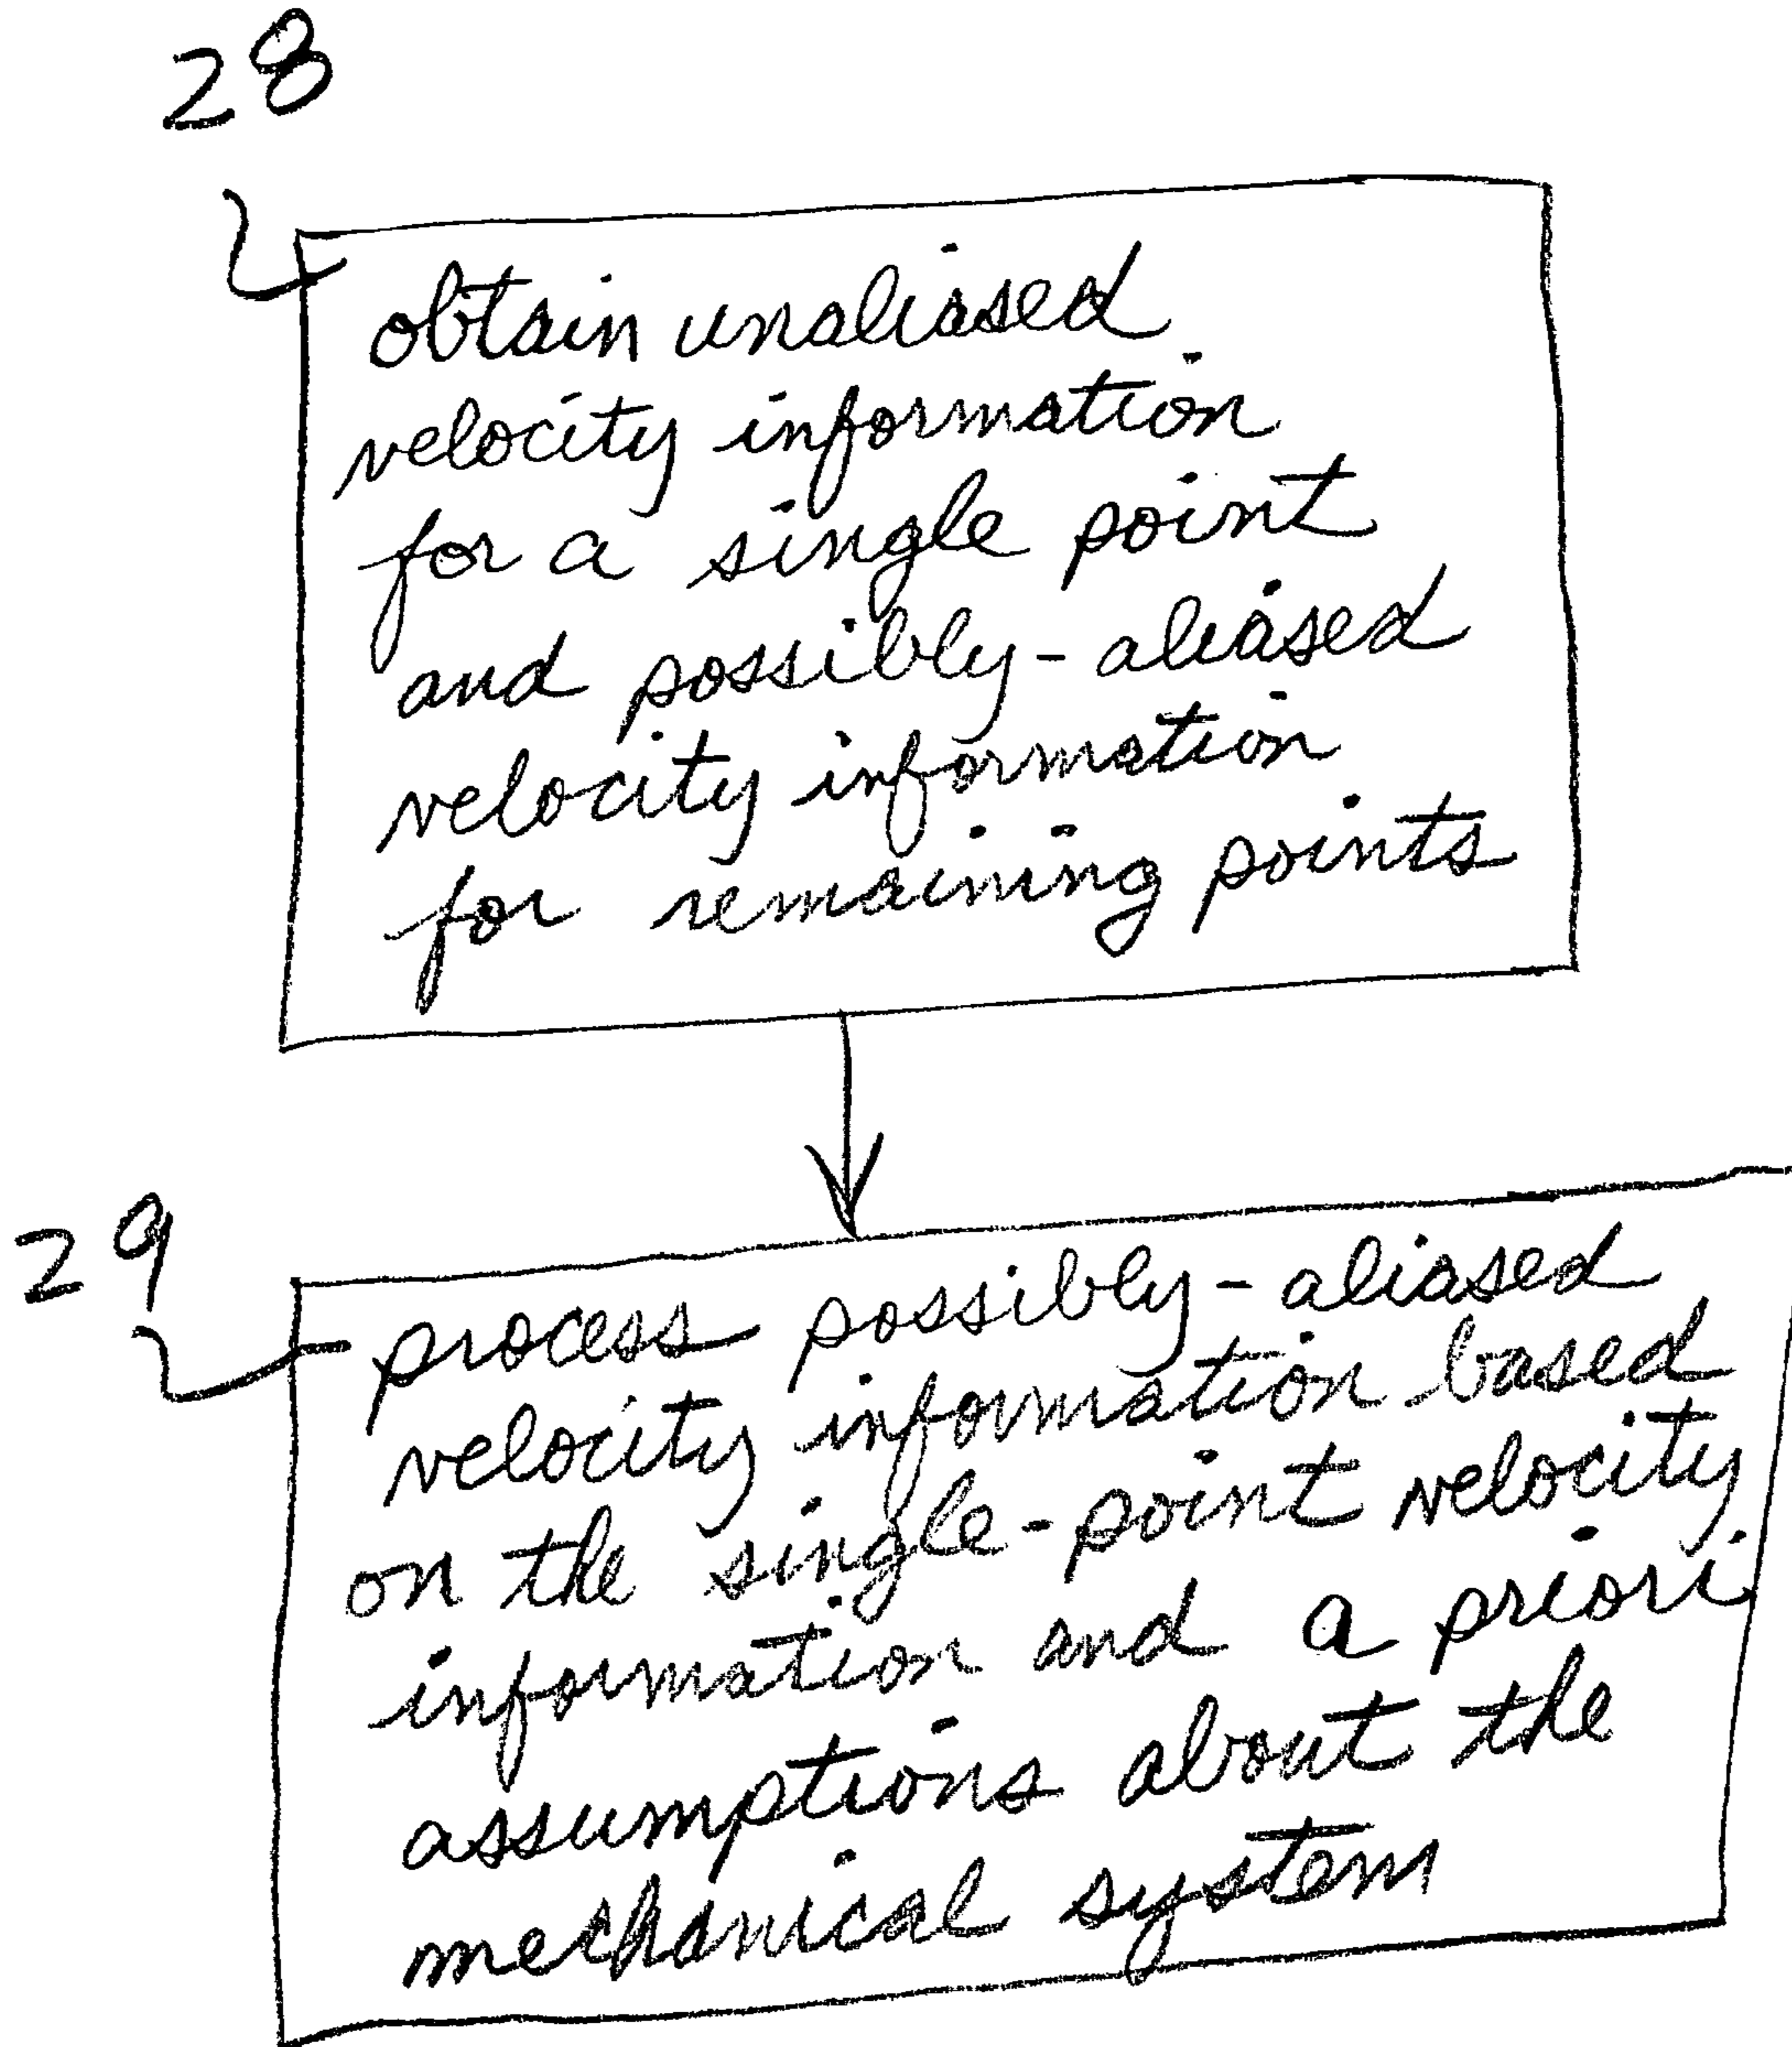 28
obtain unaliased
velocity information
for a single point
and possibly-aliased
velocity information
for remaining points
29
process possibly-aliased
velocity information based
on the single-point velocity
information and a priori
assumptions about the
mechanical system